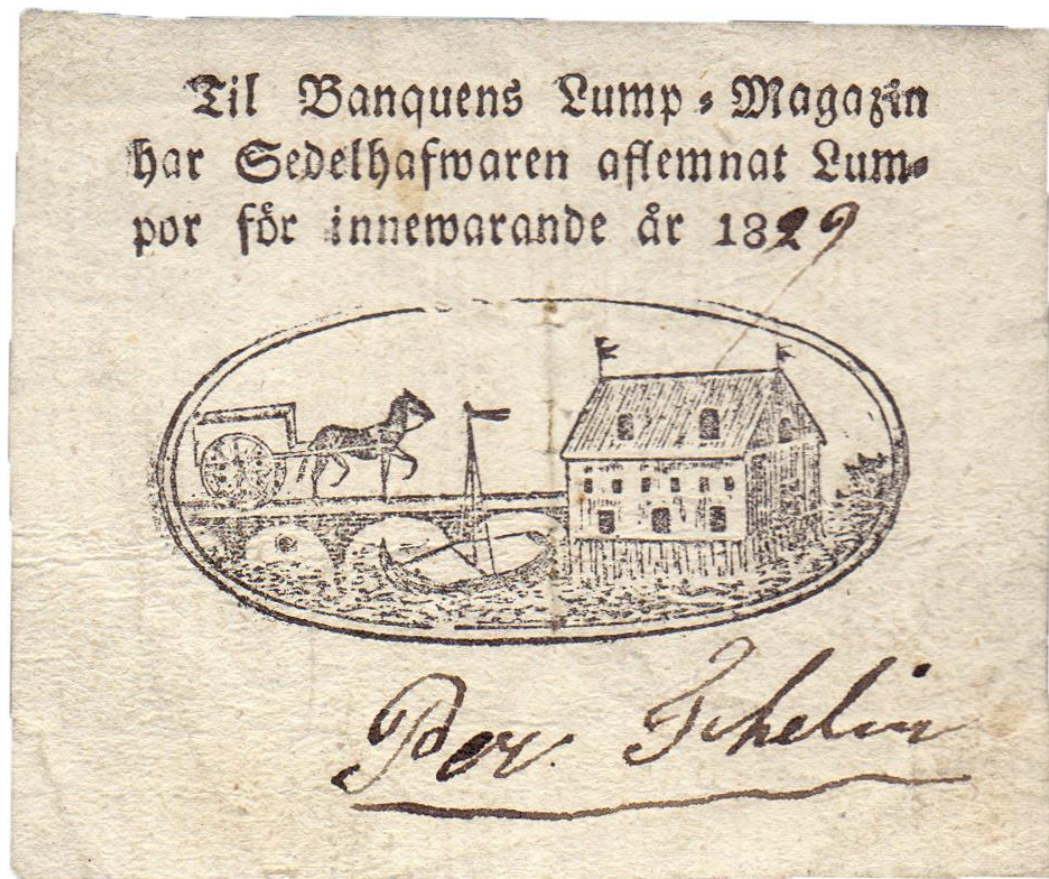 Til Banquens Lump-Magazin
har Sedelhafwaren aflemnat Lum-
por för innewarande år 1829
Per Thelin